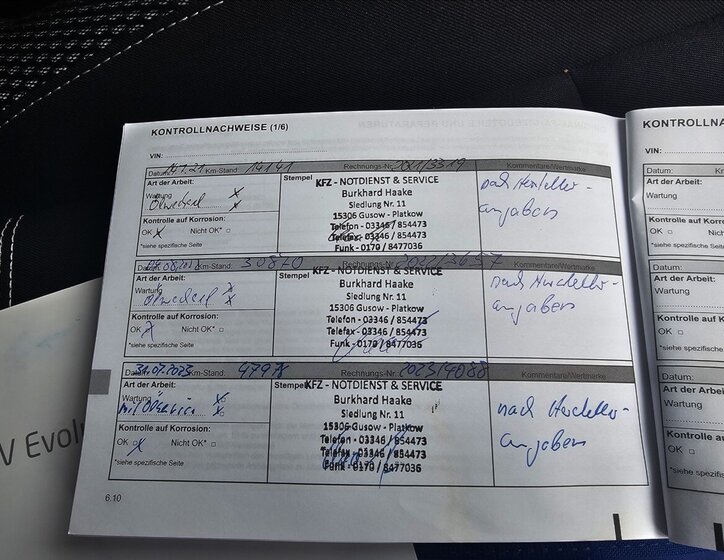 KONTROLLNACHWEISE (1/6)
KONTROLLNACH
VIN:
Datum: .21 Km-Stand: 14141 Rechnungs-Nr. 2021/3319 Kommentare/Wertmarke
Art der Arbeit:
Wartung x
Ölwechsel x
Kontrolle auf Korrosion:
OK x Nicht OK* □
*siehe spezifische Seite
Stempel KFZ - NOTDIENST & SERVICE
Burkhard Haake
Siedlung Nr. 11
15306 Gusow - Platkow
Telefon - 03346 / 854473
Telefax - 03346 / 854473
Funk - 0170 / 8477036
nach Hersteller-
angaben
Km-Stand: 30870 Rechnungs-Nr. Kommentare/Wertmarke
Art der Arbeit:
Wartung x
Ölwechsel x
Kontrolle auf Korrosion:
OK x Nicht OK* □
*siehe spezifische Seite
KFZ - NOTDIENST & SERVICE
Burkhard Haake
Siedlung Nr. 11
15306 Gusow - Platkow
Telefon - 03346 / 854473
Telefax - 03346 / 854473
Funk - 0170 / 8477036
nach Hersteller-
angaben
Datum: 31.07.2023 Km-Stand: Rechnungs-Nr. 2023/4088 Kommentare/Wertmarke
Art der Arbeit:
Wartung x
mit Ölservice x
Kontrolle auf Korrosion:
OK x Nicht OK* □
*siehe spezifische Seite
Stempel KFZ - NOTDIENST & SERVICE
Burkhard Haake
Siedlung Nr. 11
15306 Gusow - Platkow
Telefon - 03346 / 854473
Telefax - 03346 / 854473
Funk - 0170 / 8477036
nach Hersteller-
angaben
6.10
V Evolu
VIN:
Datum:
Art der Arbeit:
Wartung
Kontrolle auf K
OK □
*siehe spezifisch
Datum:
Art der Arbeit:
Wartung
Kontrolle auf K
OK □
*siehe spezifisch
Datum:
Art der Arbeit:
Wartung
Kontrolle auf
OK □
*siehe spezifis